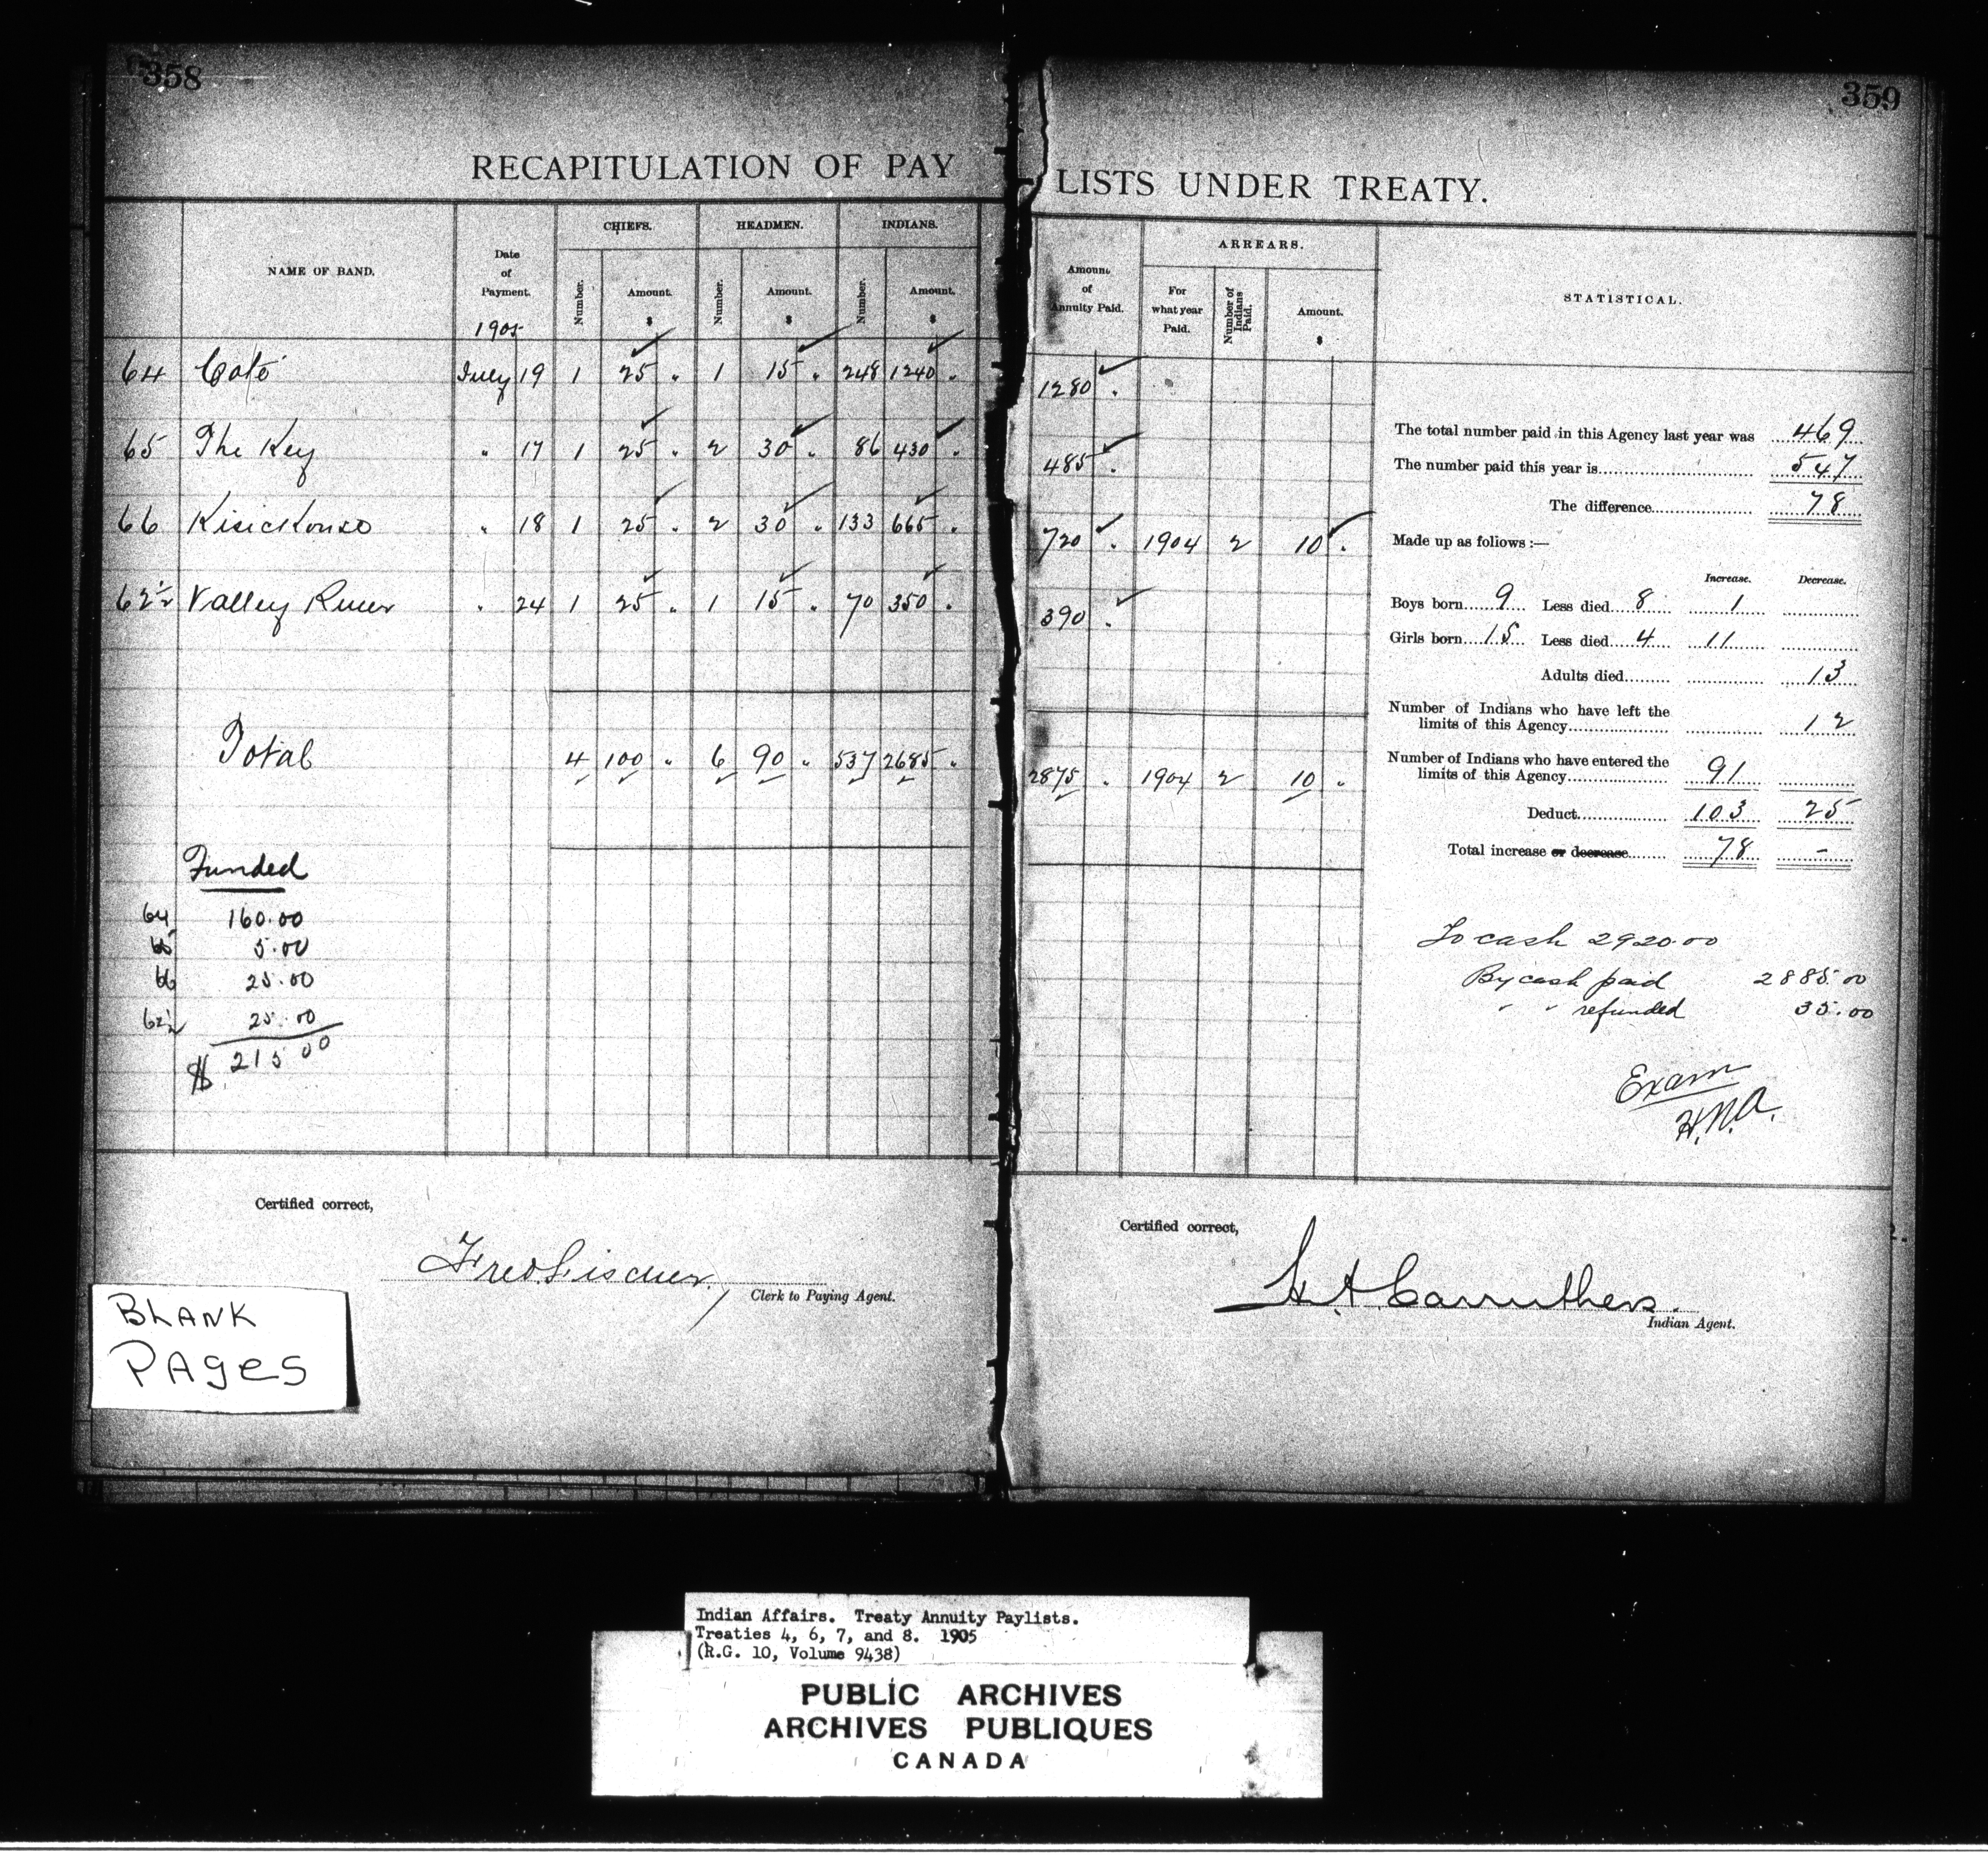 358
359
RECAPITULATION OF PAY LISTS UNDER TREATY.
NAME OF BAND.
Date of Payment.
1905
CHIEFS.
Number.
Amount.
$
HEADMEN.
Number.
Amount.
$
INDIANS.
Number.
Amount.
$
Amount of Annuity Paid.
ARREARS.
For what year Paid.
Number of Indians Paid.
Amount.
$
STATISTICAL.
64 Coté July 19 1 25 " 1 15 " 248 1240 " 1280 "
65 The Key " 17 1 25 " 2 30 " 86 430 " 485 "
66 Kisickouse " 18 1 25 " 2 30 " 133 665 " 720 " 1904 2 10 "
62½ Valley River " 24 1 25 " 1 15 " 70 350 " 390 "
Total 4 100 " 6 90 " 537 2685 " 2875 " 1904 2 10 "
Funded
64 160.00
65 5.00
66 25.00
62½ 25.00
$ 215 00
The total number paid in this Agency last year was 469
The number paid this year is 547
The difference 78
Made up as follows:—
Increase. Decrease.
Boys born 9 Less died 8 1
Girls born 15 Less died 4 11
Adults died 13
Number of Indians who have left the
limits of this Agency 12
Number of Indians who have entered the
limits of this Agency 91
Deduct 103 25
Total increase or decrease 78 -
To cash 2920.00
By cash paid 2885.00
" " refunded 35.00
Exam
H.N.A.
Certified correct,
Fred Fischer
Clerk to Paying Agent.
Certified correct,
H. A. Carruthers.
Indian Agent.
BLANK
PAGES
Indian Affairs. Treaty Annuity Paylists.
Treaties 4, 6, 7, and 8. 1905
(R.G. 10, Volume 9438)
PUBLIC ARCHIVES
ARCHIVES PUBLIQUES
CANADA